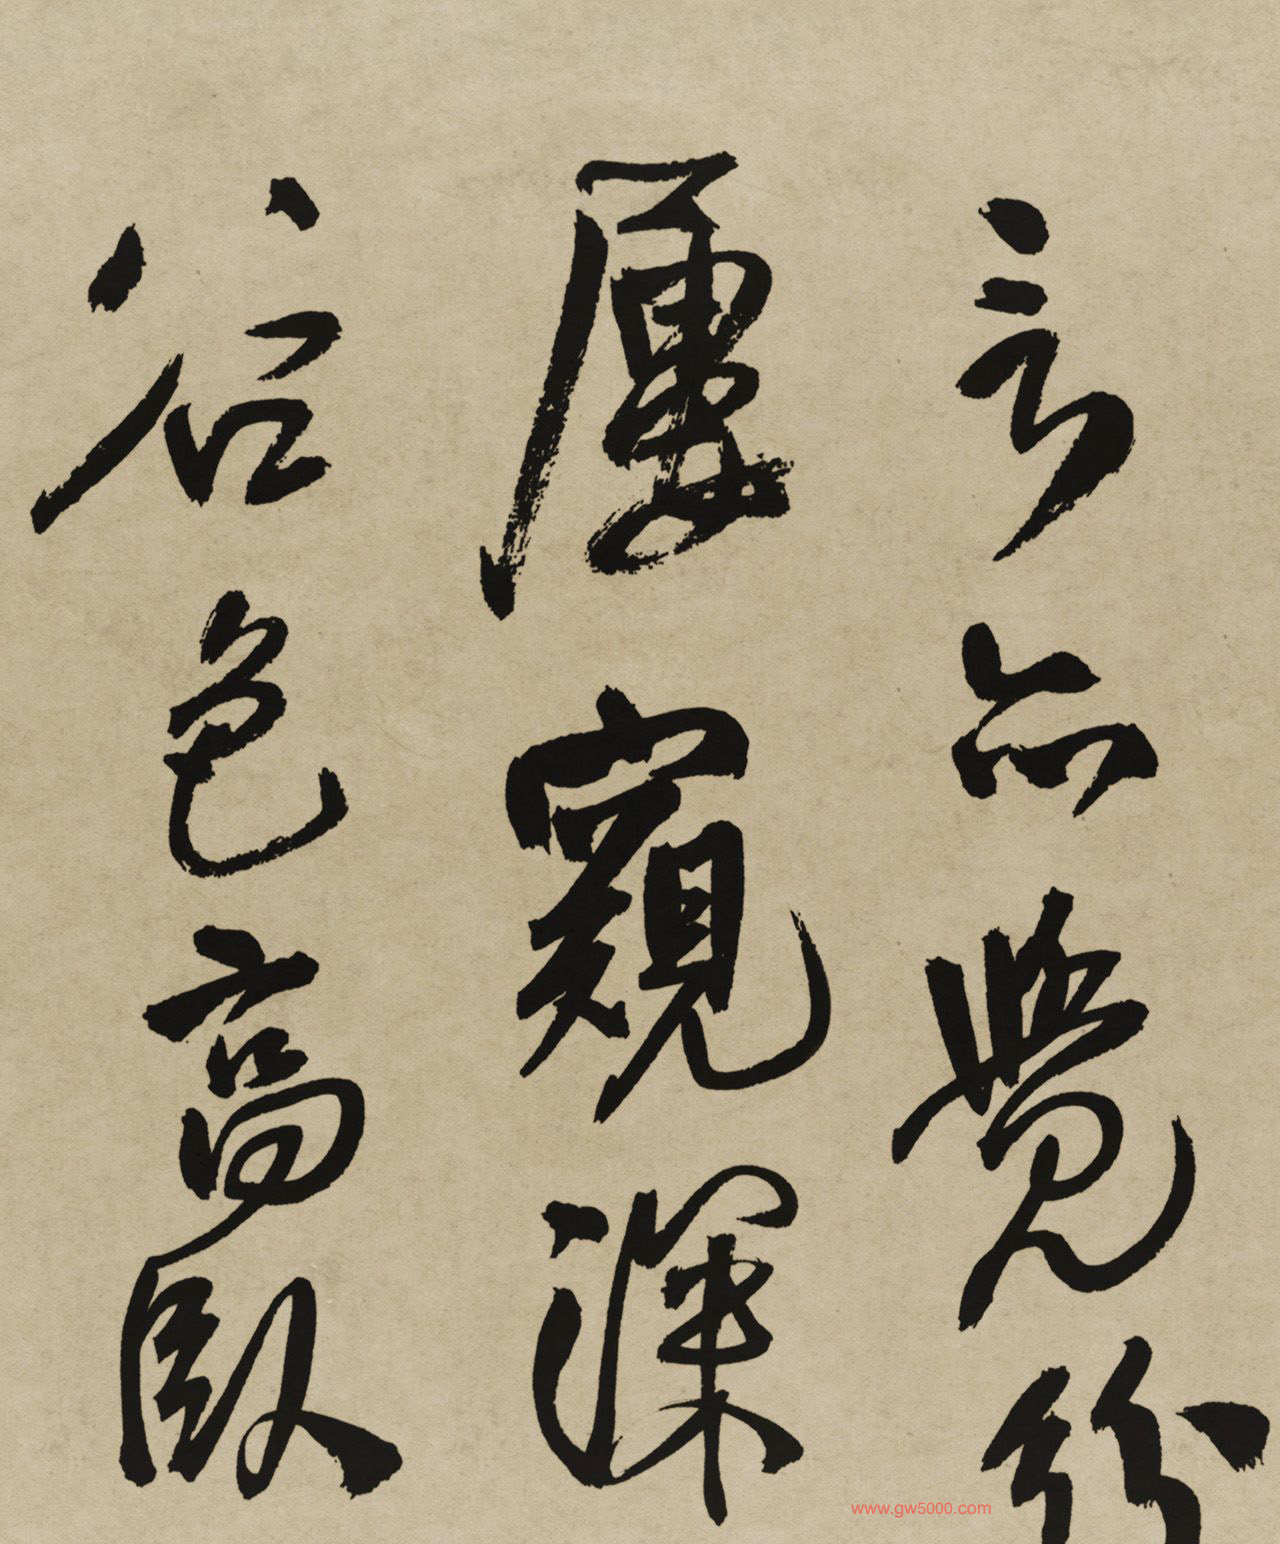 言亦覺紛
屢窺深
谷色高臥
www.gw5000.com